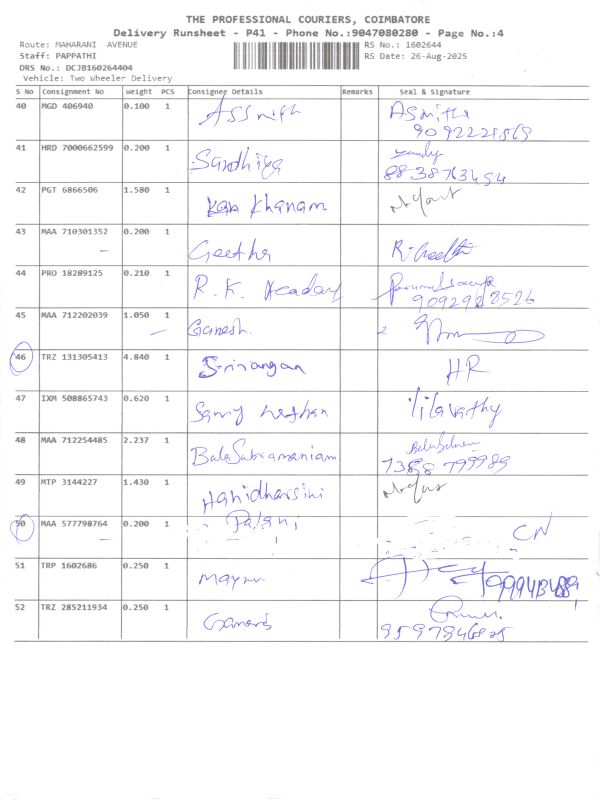 THE PROFESSIONAL COURIERS, COIMBATORE
Delivery Runsheet - P41 - Phone No.:9047080280 - Page No.:4
Route: MAHARANI AVENUE
RS No.: 1602644
Staff: PAPPATHI
RS Date: 26-Aug-2025
DRS No.: DCJB160264404
Vehicle: Two Wheeler Delivery
S No Consignment No weight PCS Consignee Details Remarks Seal & Signature
40 MGD 406940 0.100 1
41 HRD 7000662599 0.200 1 Sandhiya
42 PGT 6866506 1.580 1 Khanam
43 MAA 710301352 0.200 1 Geetha
44 PRO 18289125 0.210 1 R.K. Academy
45 MAA 712202039 1.050 1 Ganesh
46 TRZ 131305413 4.840 1 Srirangan HR
47 IXM 508865743 0.620 1 lilavathy
48 MAA 712254485 2.237 1 BalaSubramaniam
49 MTP 3144227 1.430 1 Haridharsini
50 MAA 577798764 0.200 1 Palani CN
51 TRP 1602686 0.250 1
52 TRZ 285211934 0.250 1